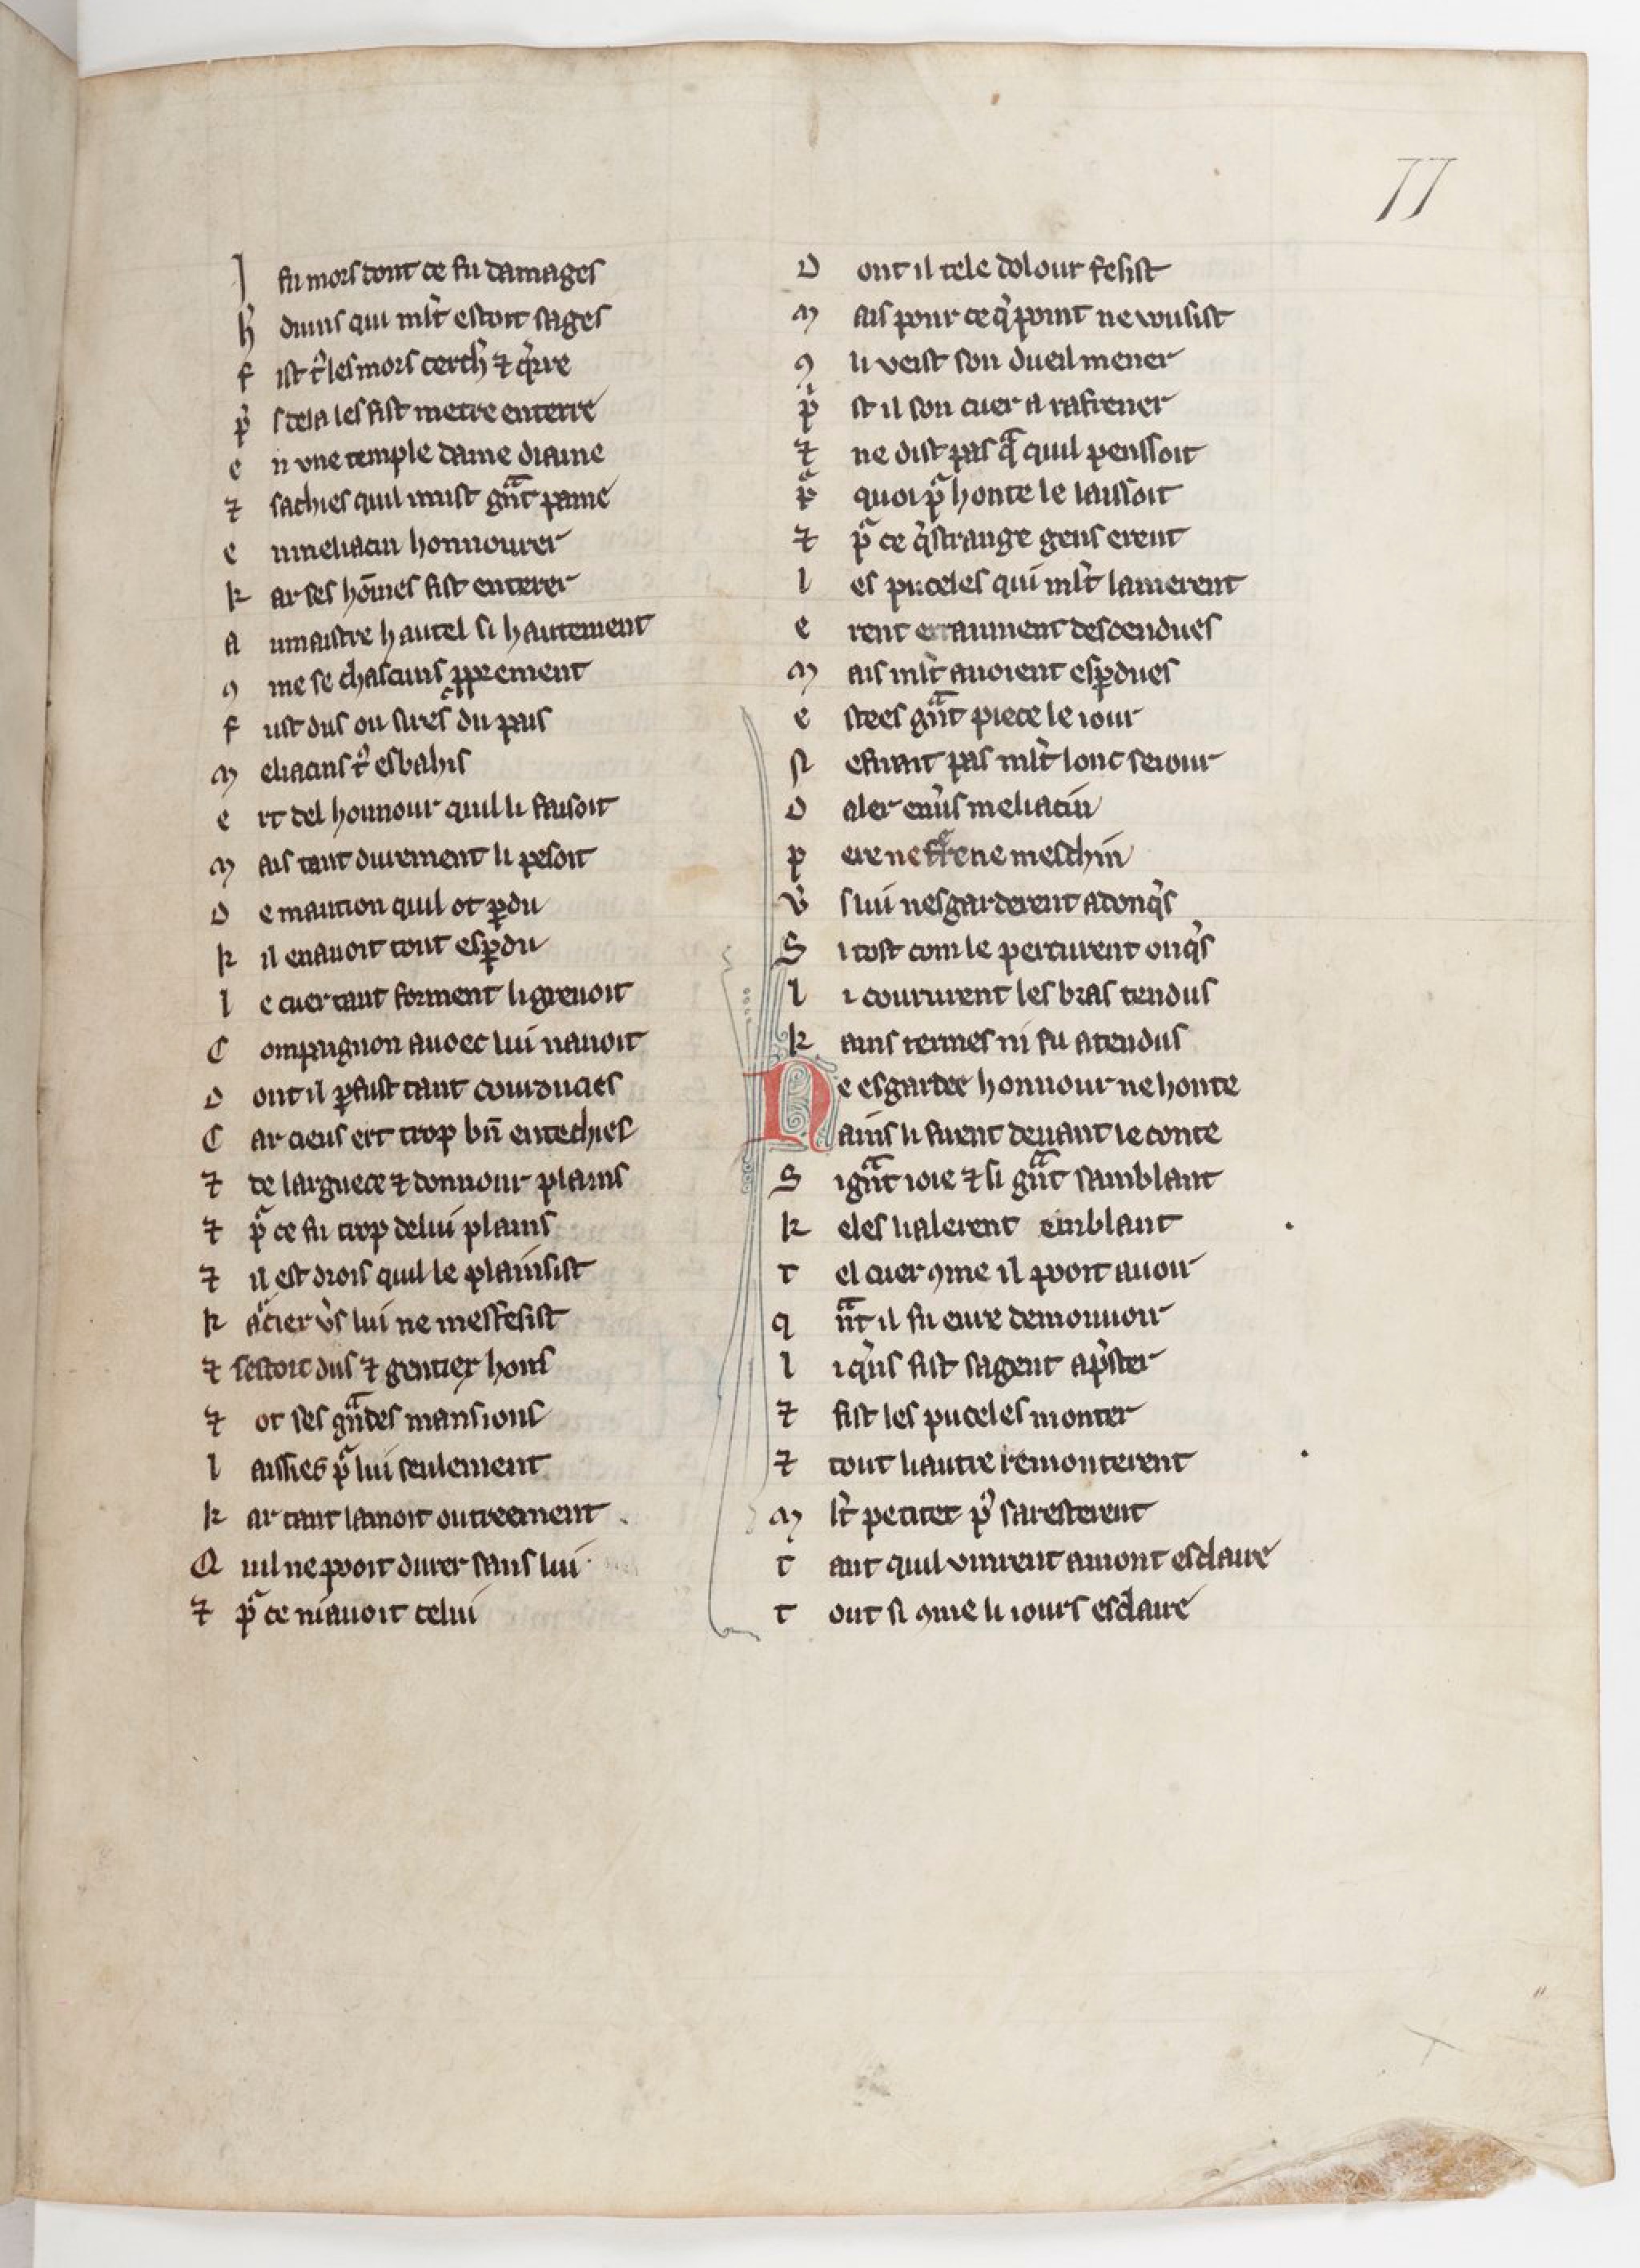 77
J fu mors dont ce fu damages
h̾ duins qui ml̃t estoit sages
f ist tͦ les mors cerch̾ ⁊ q̾rre
p̾ s cela les fist metre enterre
e n vne temple dame diaine
⁊ sachies quil imist gᵃnt paine
e nmeliacin honnourer
k ar ses hom̄es fist enterer
a umaistre hautel si hautement
ꝯ me se chascuns ꝓprement
f ust dus ou sires du pais
m eliacins tͦ esbahis
e rt del honnour quil li faisoit
m ais tant durement li pesoit
d e maucion quil ot ꝑdu
k il enauoit tout esꝑdu
l e cuer tant forment li greuoit
C ompaignon auoec lui nauoit
d ont il ꝑ fust tant couroucies
C ar cieus ert trop bn̄ entechies
⁊ de larguece ⁊ donnour plains
⁊ pͬ ce fu trop delui plains
⁊ il est drois quil le plainsist
k acͥer v̾s lui ne mesfesist
⁊ sestoit dus ⁊ gentiex hons
⁊ ot ses gᵃndes mansions
l aissies pͬ lui seulement
k ar tant lamoit outreement
Q uil ne pooit durer sans lui
⁊ pͬ ce ni auoit celui
D ont il tele dolour fesist
m ais pour ce q̾ point ne vousist
ꝯ li veist son dueil mener
p̾ st il son cuer a rafrener
⁊ ne dist pas qᵃ quil penssoit
pͬ quoi pͬ honte le laissoit
⁊ pͬ ce q̾strange gens erent
l es puceles qui ml̃t lamerent
e rent erraument descendues
m ais ml̃t auoient esꝑdues
e stees gᵃnt piece le iour
N efirent pas ml̃t lonc seiour
d aler enu̾s meliacin
p ere ne frere ne meschin
v̾ s lui nesgarderent adonq̾s
S i tost com le percurent onq̾s
l i coururent les bras tendus
k ains termes ni fu atendus
N e esgardee honnour ne honte
ains li firent deuant le conte
S i gᵃnt ioie ⁊ si gᵃnt samblant
k eles lialerent emblant
t el cuer ꝯme il pooit auoir
q ᵃnt il fu eure demouuoir
l i q̾ns fist sa gent ap̾ster
⁊ fist les puceles monter
⁊ tout li autre remonterent
m l̃t petitet pͦ saresterent
t ant quil vinrent amont esclaire
t out si ꝯme li iours esclaire